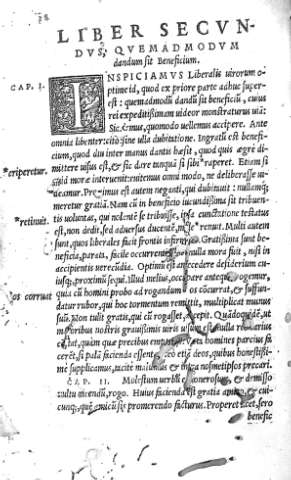 LIBER SECVN-
DVS, QVEMADMODVM
dandum sit Beneficium.
CAP. I.
INSPICIAMVS Liberalis uirorum o-
ptime id, quod ex priore parte adhuc super-
est: quemadmodũ dandũ sit beneficiũ, cuius
rei expeditißimam uideor monstraturus uiã:
Sic demus, quomodo uellemus accipere. Ante
omnia libenter: cito: sine ulla dubitatione. Ingratũ est benefi-
cium, quod diu inter manus dantis hæsit, quod quis ægre di-
mittere uisus est, & sic dare tanquã si sibi raperet. Etiam si
*eriperetur.
quid moræ interuenit: euitemus omni modo, ne deliberasse ui-
deamur. Proximus est autem neganti, qui dubitauit: nullamq;
meretur gratiã. Nam cũ in beneficio iucundißima sit tribuen-
*retinuit.
tis uoluntas, qui nolentẽ se tribuisse, ipsa cunctatione testatus
est, non dedit, sed aduersus ducentẽ, male renuit. Multi autem
sunt, quos liberales facit frontis infirmitas. Gratißima sunt be-
neficia, parata, facile occurrentia nulla mora fuit, nisi in
accipientis uerecudia. Optimũ est antecedere desideriũ cu-
iusq;, proximũ sequi. Illud melius, occupare antequã rogemur,
*os corruit
quia cũ homini probo ad rogandum os cõcurrat, & suffun-
datur rubor, qui hoc tormentum remittit, multiplicat munus
suũ. Non tulit gratis, qui cũ rogasset, accepit. Quãdoquidẽ, ut
maioribus nostris grauißimis uiris uisum est, nulla res carius
cõstat, quàm quæ precibus empta est. Vota homines parcius fa-
cerẽt, si palã facienda essent: adeo etiã deos, quibus honestißi-
me supplicamus, tacite malumus & intra nosmetipsos precari.
CAP. II. Molestum verbũ onerosum, & demisso
vultu dicendũ, rogo. Huius facienda est gratia amico, & cui-
cunq; quẽ amicũ sis promerendo facturus. Properet licet, sero
benefic